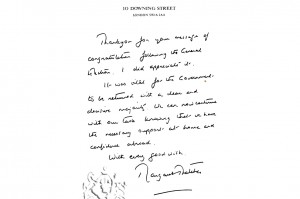 10 DOWNING STREET
LONDON SW1A 2AA
Thank you for your message of
congratulation following the General
Election. I did appreciate it.
It was vital for the Government
to be returned with a clear and
decisive majority. We can now continue
with our task knowing that we have
the necessary support at home and
confidence abroad.
With every good wish.
Margaret Thatcher